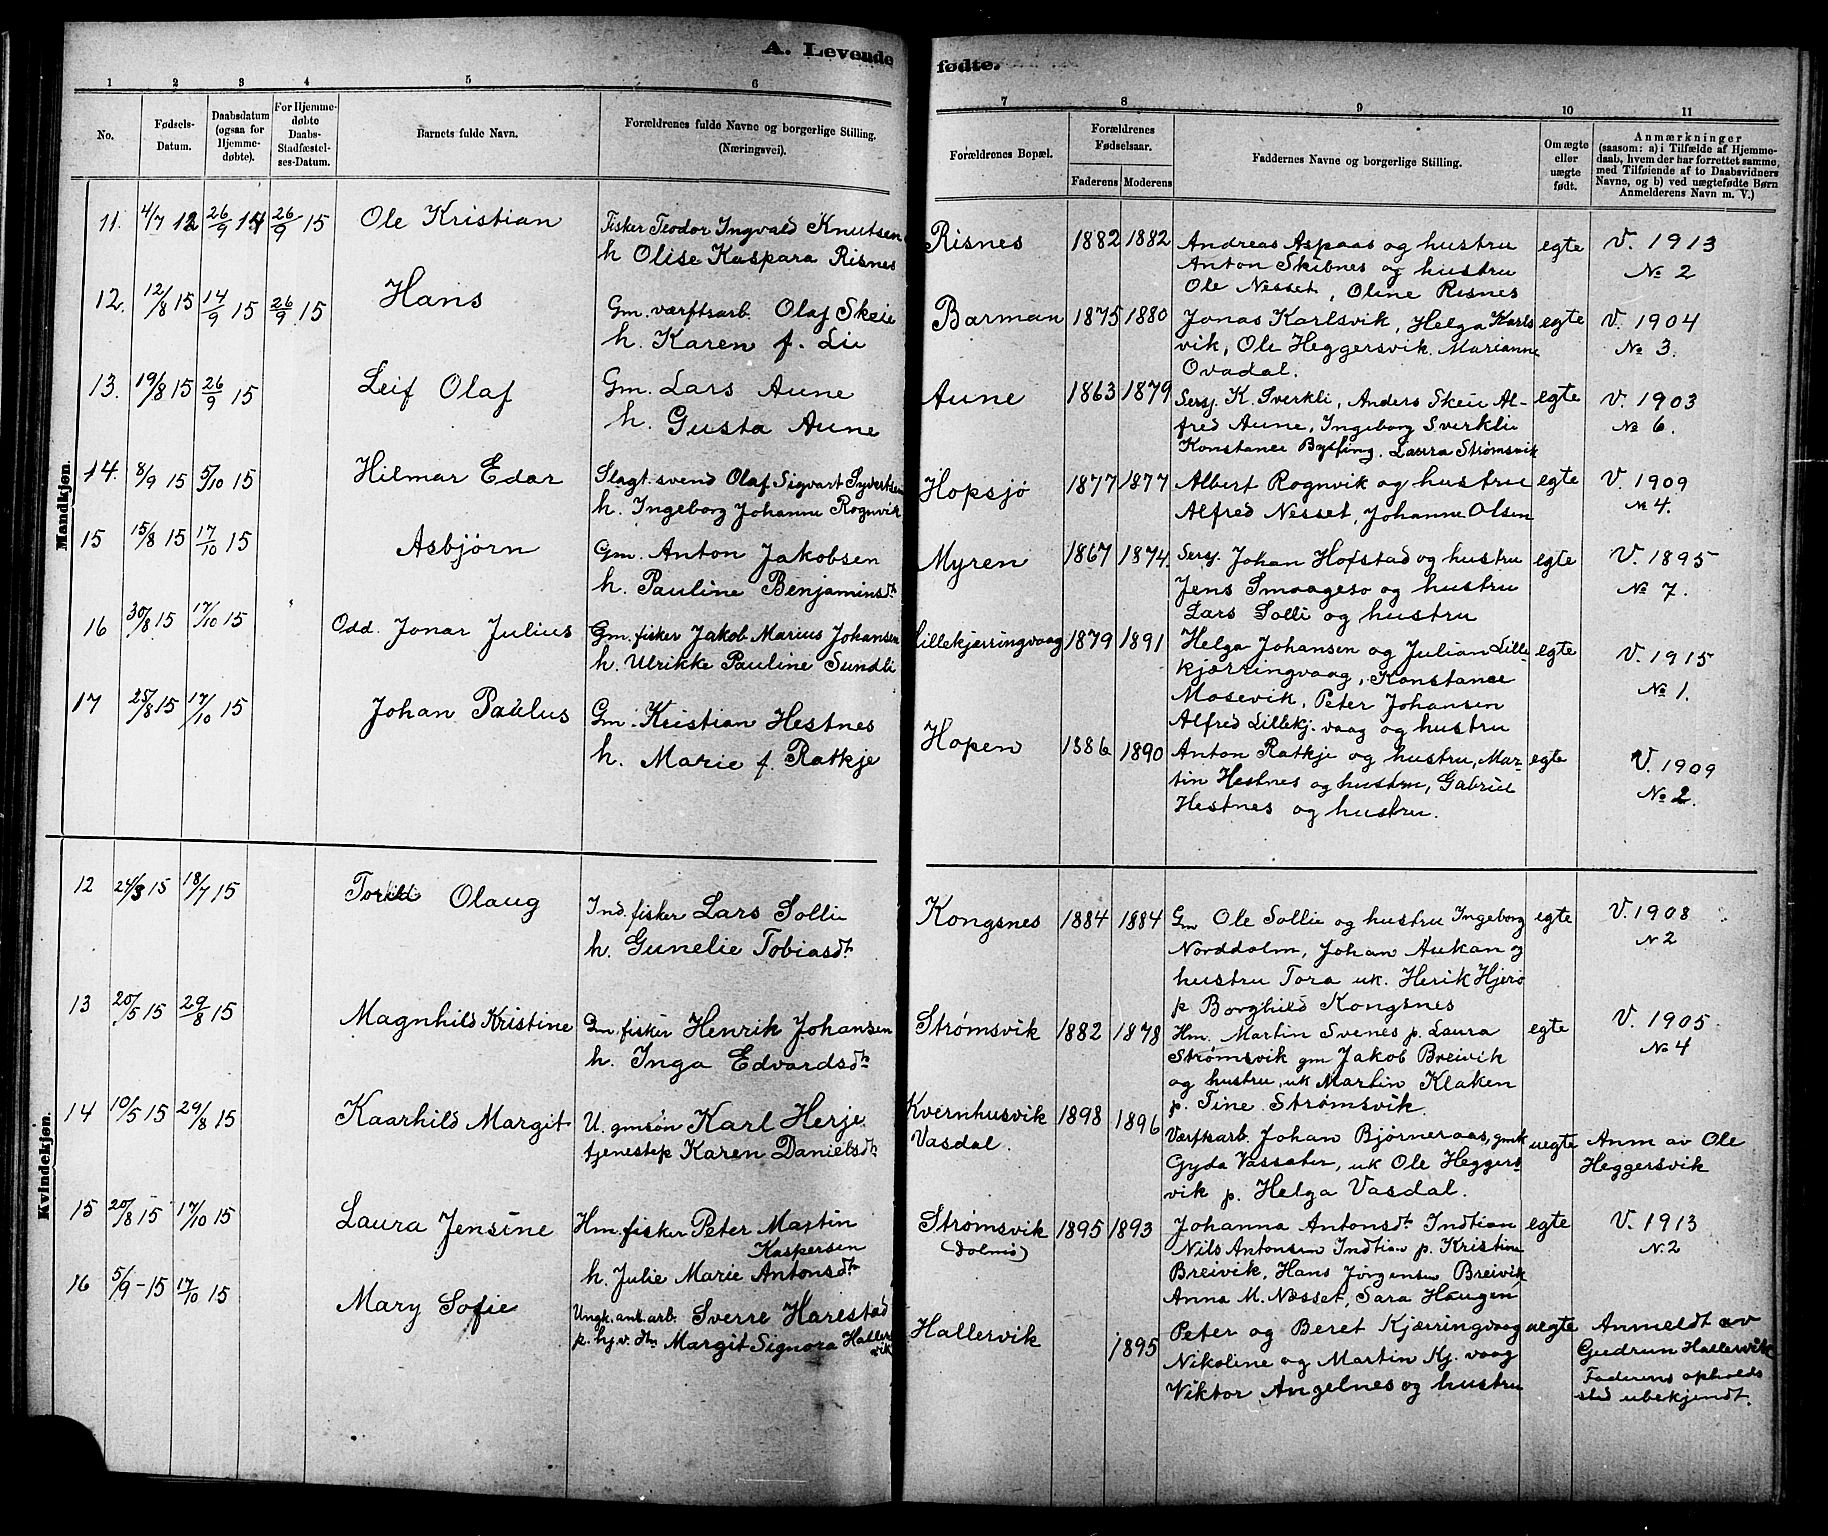 A. Levende
1 2 3 4 5 6
No.
Fødsels-
Datum.
Daabsdatum
(ogsaa for
Hjemme-
døbte).
For Hjemme-
døbte
Daabs-
Stadfæstel-
ses-Datum.
Barnets fulde Navn.
Forældrenes fulde Navne og borgerlige Stilling.
(Næringsvei).
Mandkjøn.
11. 4/7 12 26/9 14 26/9 15 Ole Kristian Fisker Teodor Ingvald Knutsen
h Olise Kaspara Risnes
12. 12/8 15 14/9 15 26/9 15 Hans Gm. værftsarb. Olaf Skeie
h. Karen f. Lii
13. 19/8 15 26/9 15 Leif Olaf Gm. Lars Aune
h. Gusta Aune
14. 8/9 15 5/10 15 Hilmar Edar Slagt. svend Olaf Sigvart Syvertsen
h. Ingeborg Johanne Rognvik
15 15/8 15 17/10 15 Asbjørn Gm. Anton Jakobsen
h. Pauline Benjaminsdt
16 30/8 15 17/10 15 Odd. Jonar Julius Gm. fisker Jakob Marius Johansen
h. Ulrikke Pauline Sundli
17 25/8 15 17/10 15 Johan Paulus Gm. Kristian Hestnes
h. Marie f. Ratkje
Kvindekjøn.
12 24/3 15 18/7 15 Torild Olaug Ind. fisker Lars Solli
h. Gunelie Tobiasdt
13 20/5 15 29/8 15 Magnhild Kristine Gm fisker Henrik Johansen
h. Inga Edvardsdt
14 10/5 15 29/8 15 Kaarhild Margit U. gmsøn Karl Herje
tjenestep Karen Danielsdt
15 20/8 15 17/10 15 Laura Jensine Hm. fisker Peter Martin
Kaspersen
h. Julie Marie Antonsdt
16 5/9 - 15 17/10 15 Mary Sofie Ungk. anl. arb. Sverre Harestad
p. hj. v. dtr Margit Signora Haller
vik
fødte.
7 8 9 10 11
Forældrenes Bopæl.
Forældrenes
Fødselsaar.
Faderens Moderens
Faddernes Navne og borgerlige Stilling.
Om ægte
eller
uægte
født.
Anmærkninger
(saasom: a) i Tilfælde af Hjemme-
daab, hvem der har forrettet samme,
med Tilføiende af to Daabsvidners
Navne, og b) ved uægtefødte Børn
Anmelderens Navn m. V.)
Risnes 1882 1882 Andreas Aspaas og hustru egte V. 1913
Anton Skibnes og hustru № 2
Ole Nesset, Oline Risnes
Barman 1875 1880 Jonas Karlsvik, Helga Karls egte V. 1904
vik, Ole Heggersvik. Marianne № 3.
Ovadal.
Aune 1863 1879 Sersj. K. Sverkli, Anders Skeie Al- egte V. 1903
fred Aune, Ingeborg Sverkli № 6.
Konstance Bysting. Laura Strømsvik
Hopsjø 1877 1877 Albert Rognvik og hustru egte V. 1909
Alfred Nesset, Johanne Olsen № 4.
Myren 1867 1874. Sersj. Johan Hofstad og hustru egte V. 1895
Jens Smaageso og hustru № 7.
Lars Solli og hustru
Lillekjærringvaag 1879 1891 Helga Johansen og Julian Lille egte V. 1915
kjærringvaag, Konstance № 1.
Mosevik, Peter Johansen
Alfred Lillekj. vaag og hustru
Hopen 1886 1890 Anton Ratkje og hustru, Mar- egte V. 1909
tin Hestnes og hustru, Gabriel № 2.
Hestnes og hustru.
Kongsnes 1884 1884 Gm Ole Sollie og hustru Ingeborg egte V. 1908
Norddolm, Johan Aukan og № 2
hustru Tora uk. Herik Hjerø
p Borghild Kongsnes
Strømsvik 1882 1878 Hm. Martin Svenes p. Laura egte V. 1905
Strømsvik gm Jakob Breivik № 4
og hustru, uk Martin Klaken
p. Tine. Strømsvik.
Kvernhusvik 1898 1896 Værftarb. Johan Bjørneraas, gmk uegte Anm av Ole
Vasdal. Gyda Vassater, uk Ole Heggers Heggersvik
vik p. Helga Vasdal.
Strømsvik 1895 1893 Johanna Antonsdt Indtian egte V. 1913
(Dolmø) Nils Antonsen Indtian p. Kristine № 2
Breivik, Hans Jørgensen Breivik
Anna M. Næsset, Sara Haugen
Hallervik 1895 Peter og Beret Kjærringvaag uegte Anmeldt av
Nikoline og Martin Kj. vaag Gudrun Hallervik
Viktor Angelnes og hustru Faderens opholds
sted ubekjendt.